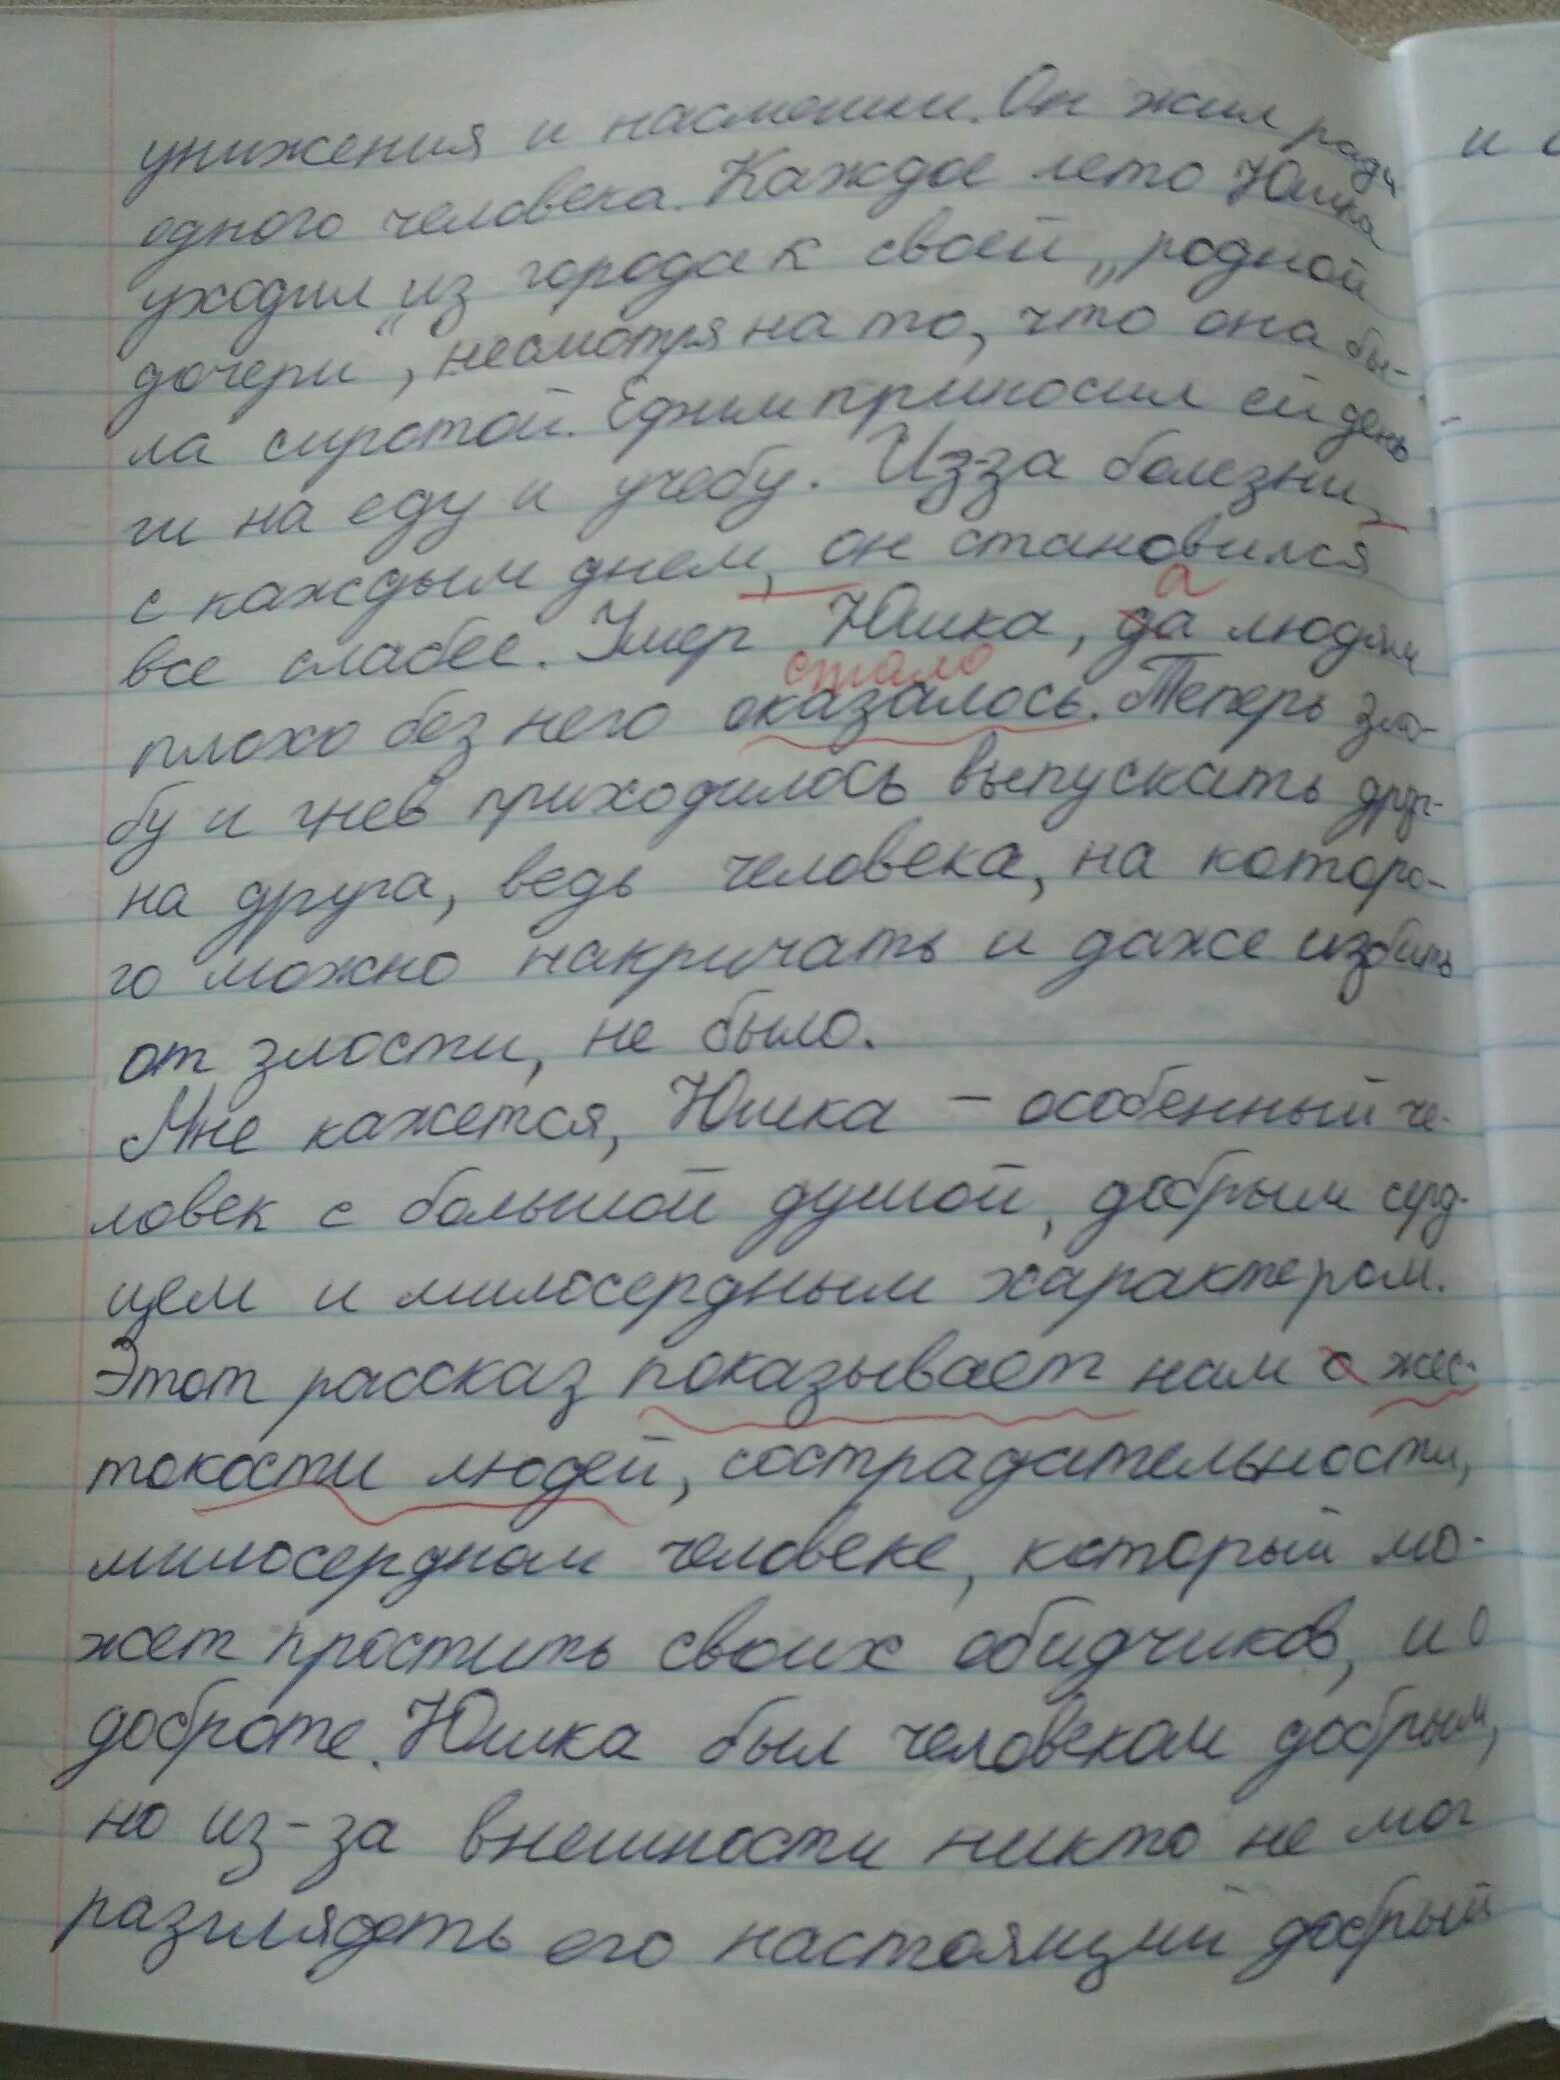 унижения и насмешки. Он жил ради
одного человека. Каждое лето Юшка
уходил из города к своей „родной
дочери“, несмотря на то, что она бы-
ла сиротой. Ефим приносил ей день
ги на еду и учебу. Из-за болезни,
с каждым днем, он становился
а
все слабее. Умер Юшка, да людям
стало
плохо без него оказалось. Теперь зло-
бу и гнев приходилось выпускать друг-
на друга, ведь человека, на которо-
го можно накричать и даже избить
от злости, не было.
Мне кажется, Юшка – особенный че-
ловек с большой душой, добрым серд-
цем и милосердным характером.
Этот рассказ показывает нам о жес-
токости людей, сострадательности,
милосердном человеке, который мо-
жет простить своих обидчиков, и о
доброте. Юшка был человеком добрым,
но из-за внешности никто не мог
разглядеть его настоящий добрый
и